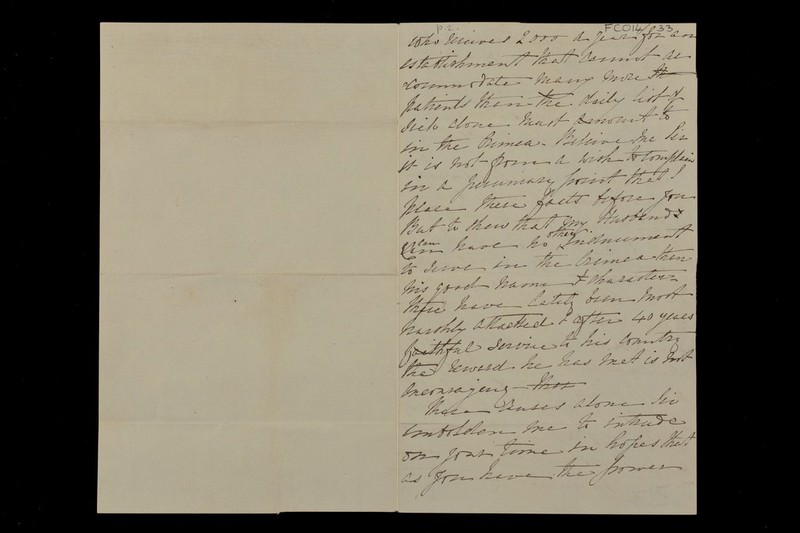 p. 2. FCO14/33
who receives 2000 a year for an
establishment that cannot ac
commodate many more
patients than the daily list of
sick alone must amount to
in the Crimea. Believe me Sir
it is not from a wish to complain
in a pecuniary point that I
place these facts before you
But to shew that my Husband &
can have no other inducement
to serve in the Crimea than
his good name & character
these have lately been most
harshly attacked & after 40 years
faithful service to his Country
the reward he has met is not
encouraging
These causes alone Sir
embolden me to intrude
on your time in hopes that
as you have the power